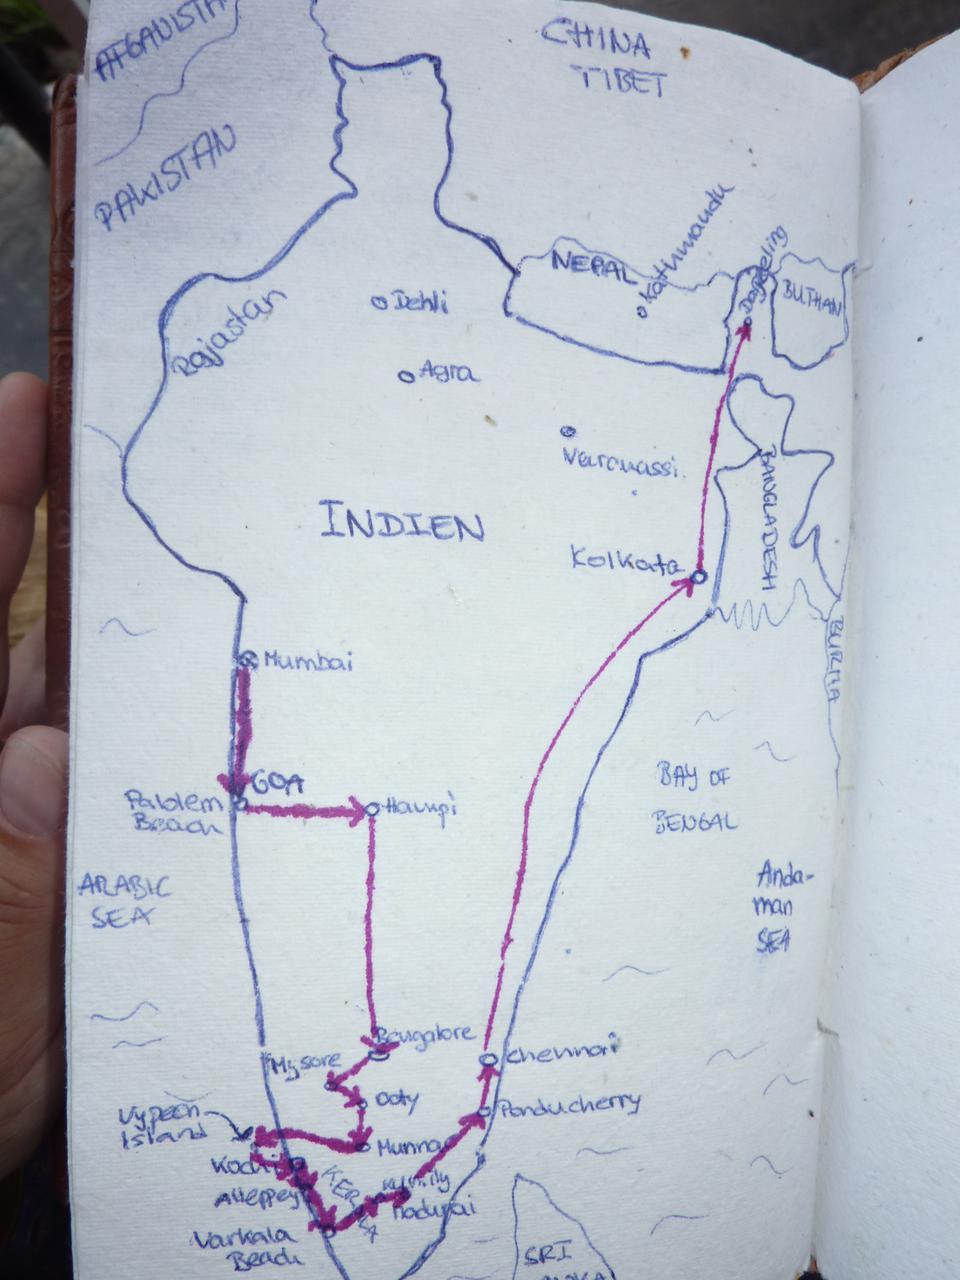 AFGANISTA
CHINA
TIBET
PAKISTAN
NEPAL
Kathmandu
BUTHAN
Dehli
Rajastan
Agra
INDIEN
BANGLADESH
Kolkata
BURMA
Mumbai
GOA
Palolem
Beach
Hampi
BAY OF
BENGAL
ARABIC
SEA
Anda-
man
SEA
Bangalore
Mysore
Chennai
Ooty
Vypeen
Island
Ponducherry
Munnar
Kochi
KERALA
Alleppey
Kumily
Madurai
Varkala
Beach
SRI